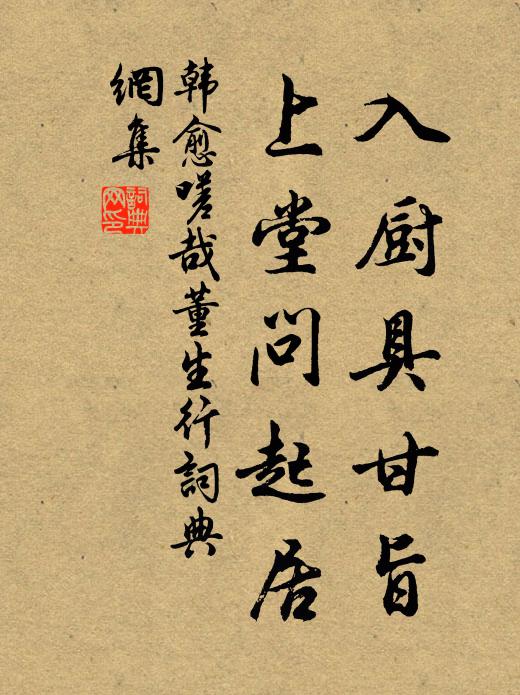 入厨具甘旨
上堂問起居
韩愈嗟哉董生行詞典
網集
詞典
网印